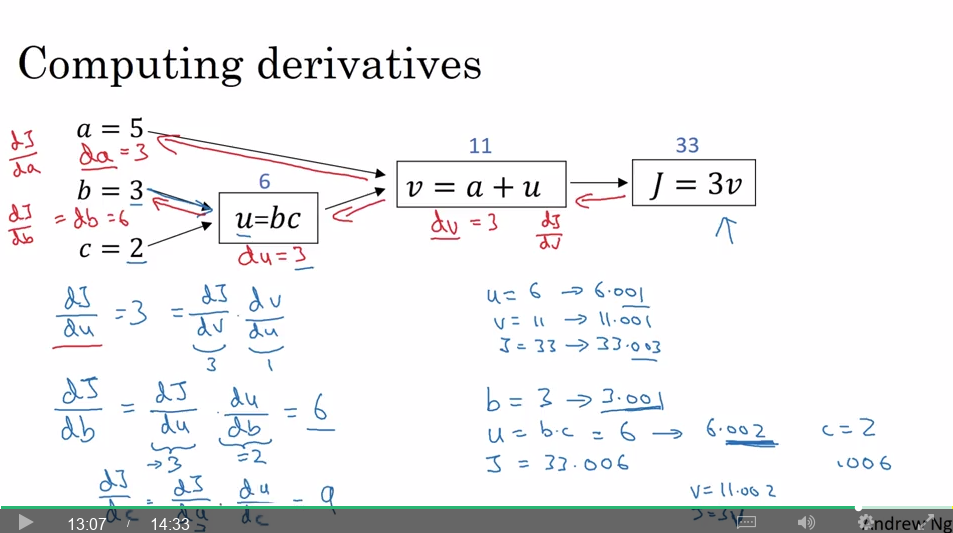 Computing derivatives
a = 5
dJ/da
da = 3
b = 3
dJ/db = db = 6
c = 2
6
u=bc
du = 3
11
v = a + u
dv = 3
dJ/dv
33
J = 3v
dJ/du = 3 = dJ/dv · dv/du
3 1
dJ/db = dJ/du · du/db = 6
→3 =2
dJ/dc = dJ/du · du/dc = 9
3
u = 6 → 6.001
v = 11 → 11.001
J = 33 → 33.003
b = 3 → 3.001
u = b·c = 6 → 6.002 c = 2
J = 33.006 .006
v = 11.002
J = 3v
13:07 / 14:33
Andrew Ng